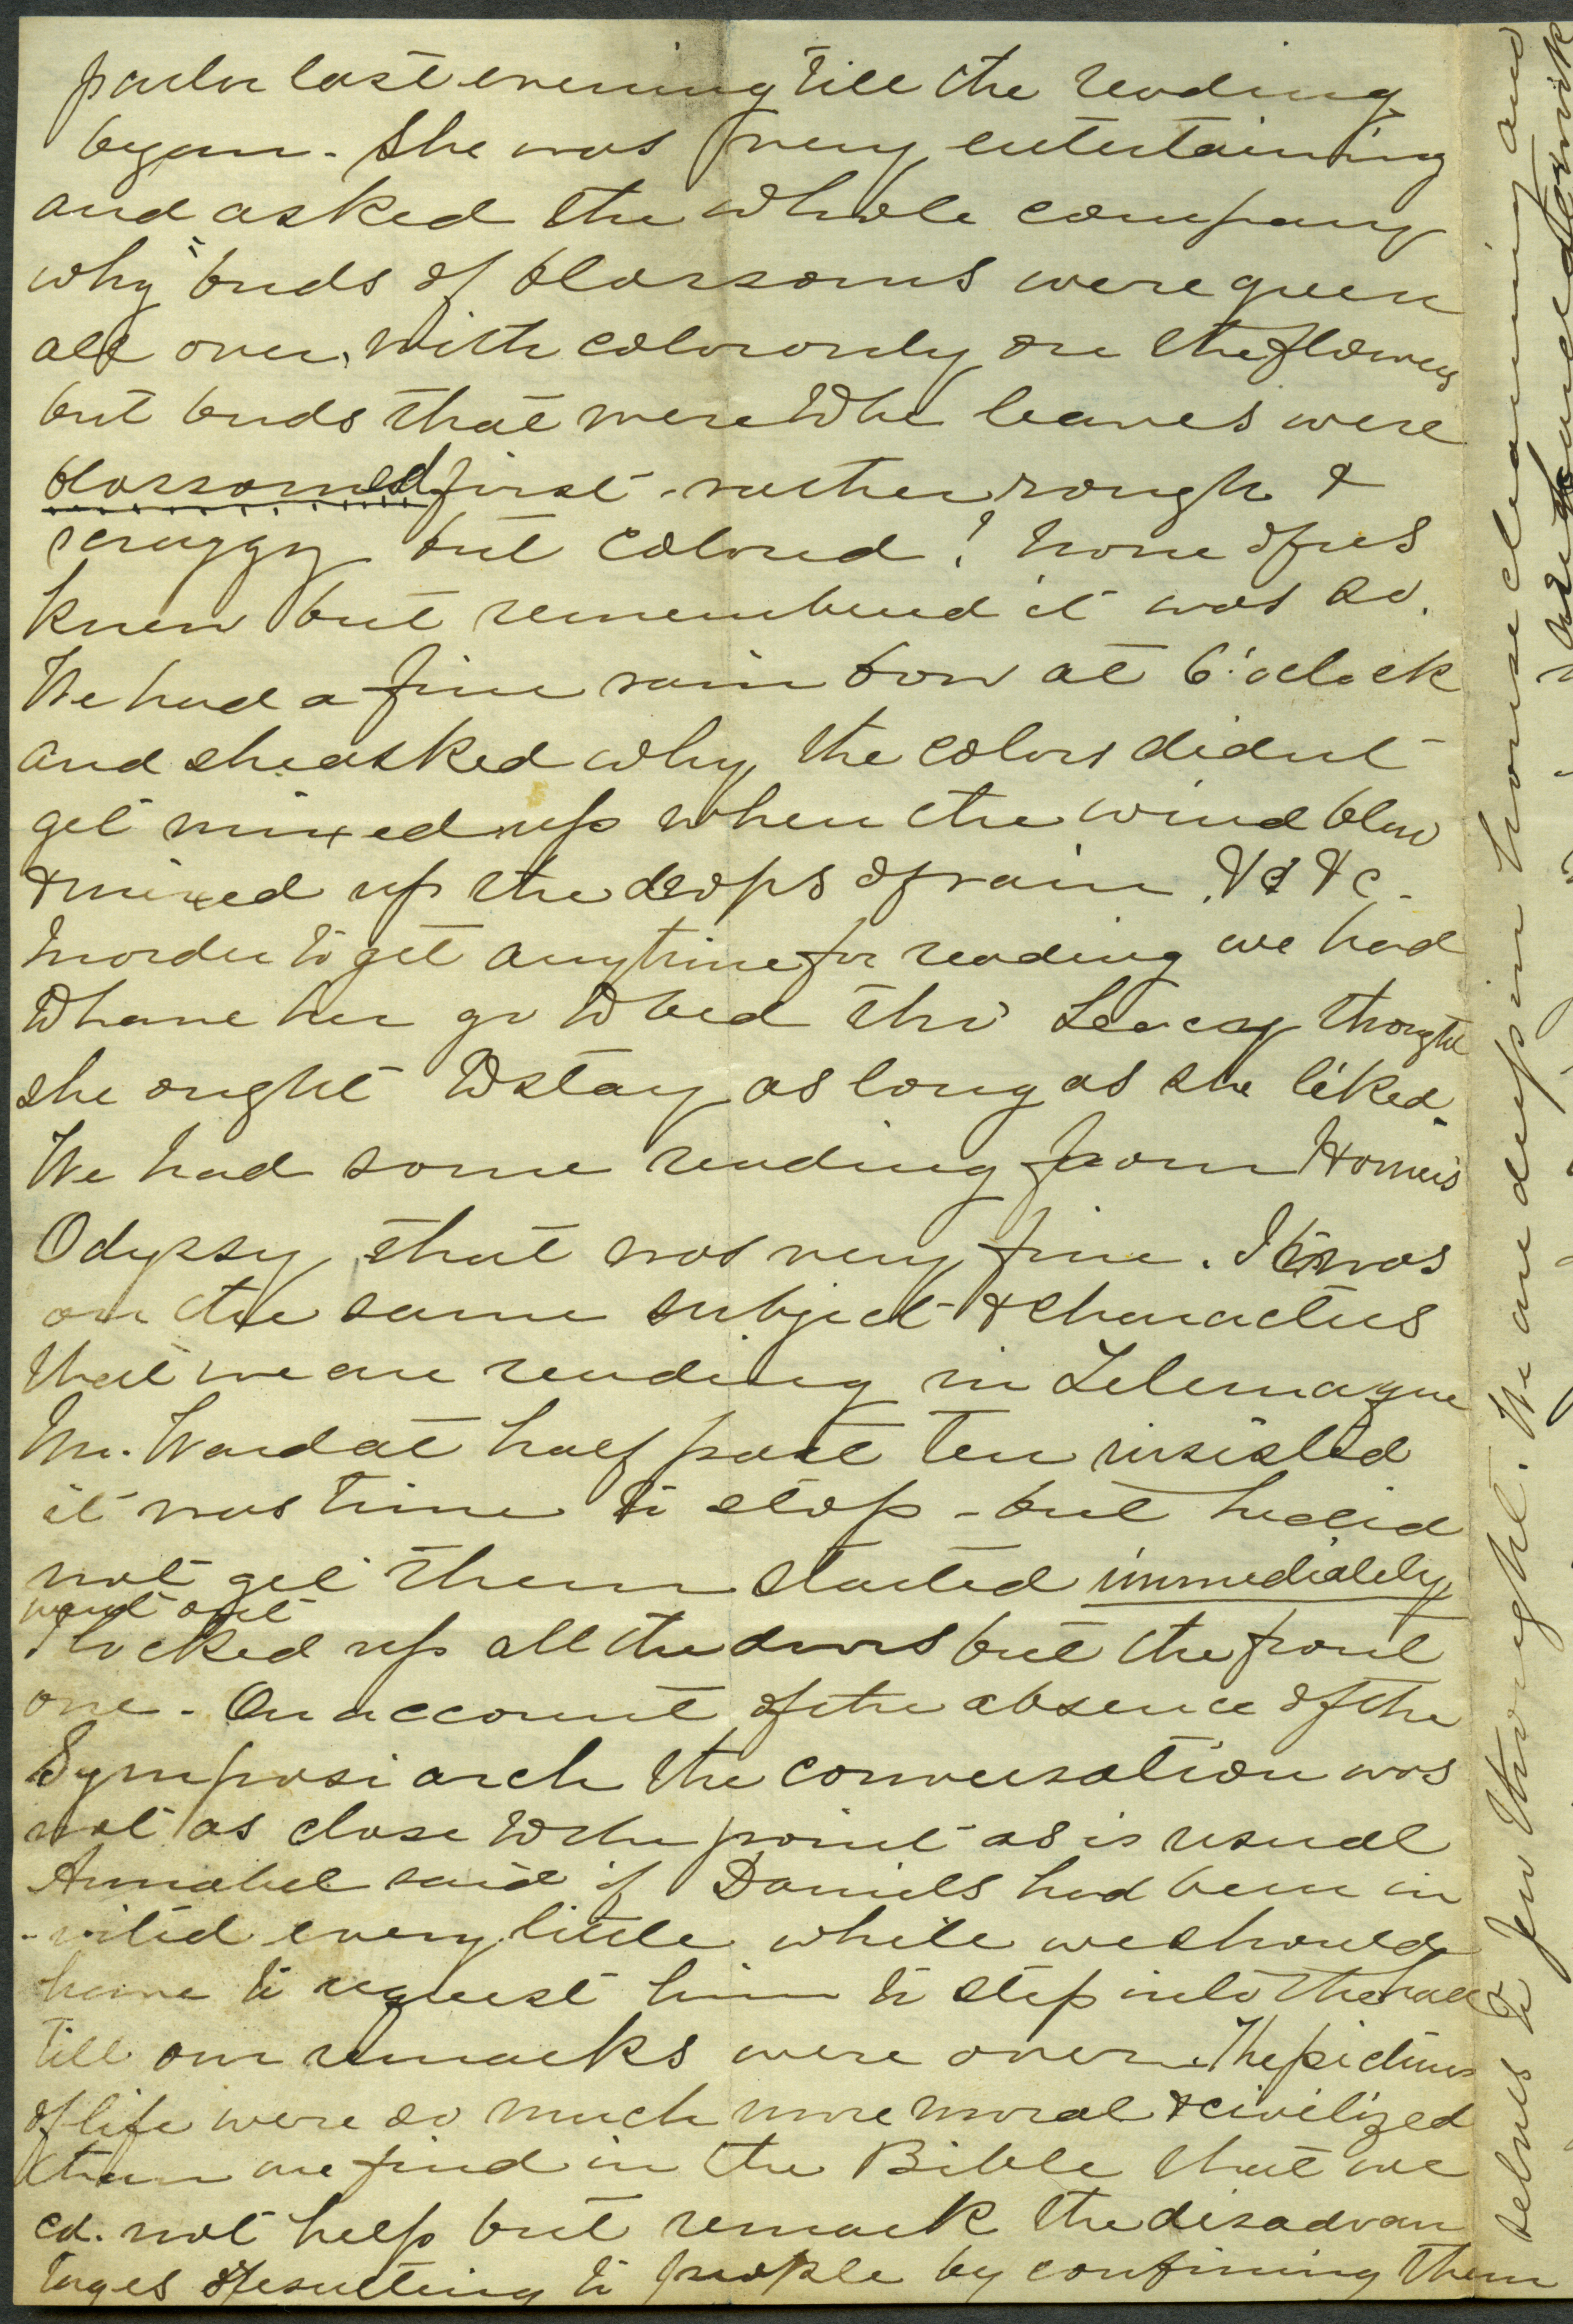 parlor last evening till the reading
began - She was very entertaining
and asked the whole company
why buds of blossoms were green
all over, with color only on the flowers
but buds that were to be leaves were
blossomed first - rather rough &
scraggy but colored! None of us
knew but remembered it was so.
We had a fine rain bow at 6 'oclock
and she asked why the colors didnt
get mixed up when the wind blew
& mixed up the drops of rain. &c &c -
In order to get any time for reading we had
to have her go to bed tho' Leacy thought
she ought to stay as long as she liked.
We had some reading from Homer's
Odyssy, that was very fine. It was
on the same subject & characters
that we are reading in Telemaque
Mr. Ward at half past ten insisted
it was time to stop - but he did
not get them started immediately
went out
& locked up all the doors but the front
one - On account of the absence of the
Symposiarch the conversation was
not as close to the point as is usual
Annabel said if Daniels had been in
-vited every little while we should
have to request him to step into the hall
till our remarks were over. The pictures
of life were so much more moral & civilized
than we find in the Bible that we
cd. not help but remark the disadvan
tages resulting to people by confining them
selves to few thought. We are deep in house cleaning and